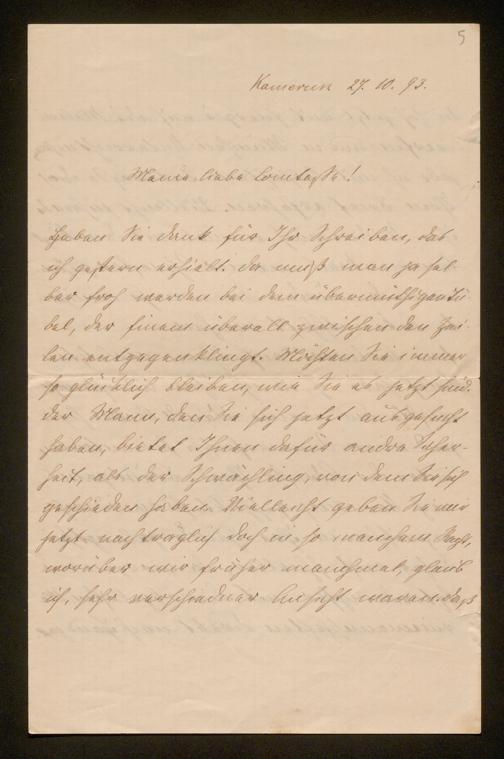 5
Kamerun 27. 10. 93.
Meine liebe Comtesse!
Haben Sie Dank für Ihr Schreiben, das
ich gestern erhielt. Da muß man ja sel-
ber froh werden bei dem übermüthigen Ju-
bel, der Einem überall zwischen den Zei-
len entgegenklingt. Möchten Sie immer
so glücklich bleiben, wie Sie es jetzt sind.
Der Mann, den Sie sich jetzt ausgesucht
haben, bietet Ihnen dafür andre Sicher-
heit, als der Schwächling, von dem Sie sich
geschieden haben. Vielleicht geben Sie mir
jetzt nachträglich doch in so manchem Recht,
worüber wir früher manchmal, glaub
ich, sehr verschiedner Ansicht waren. Daß